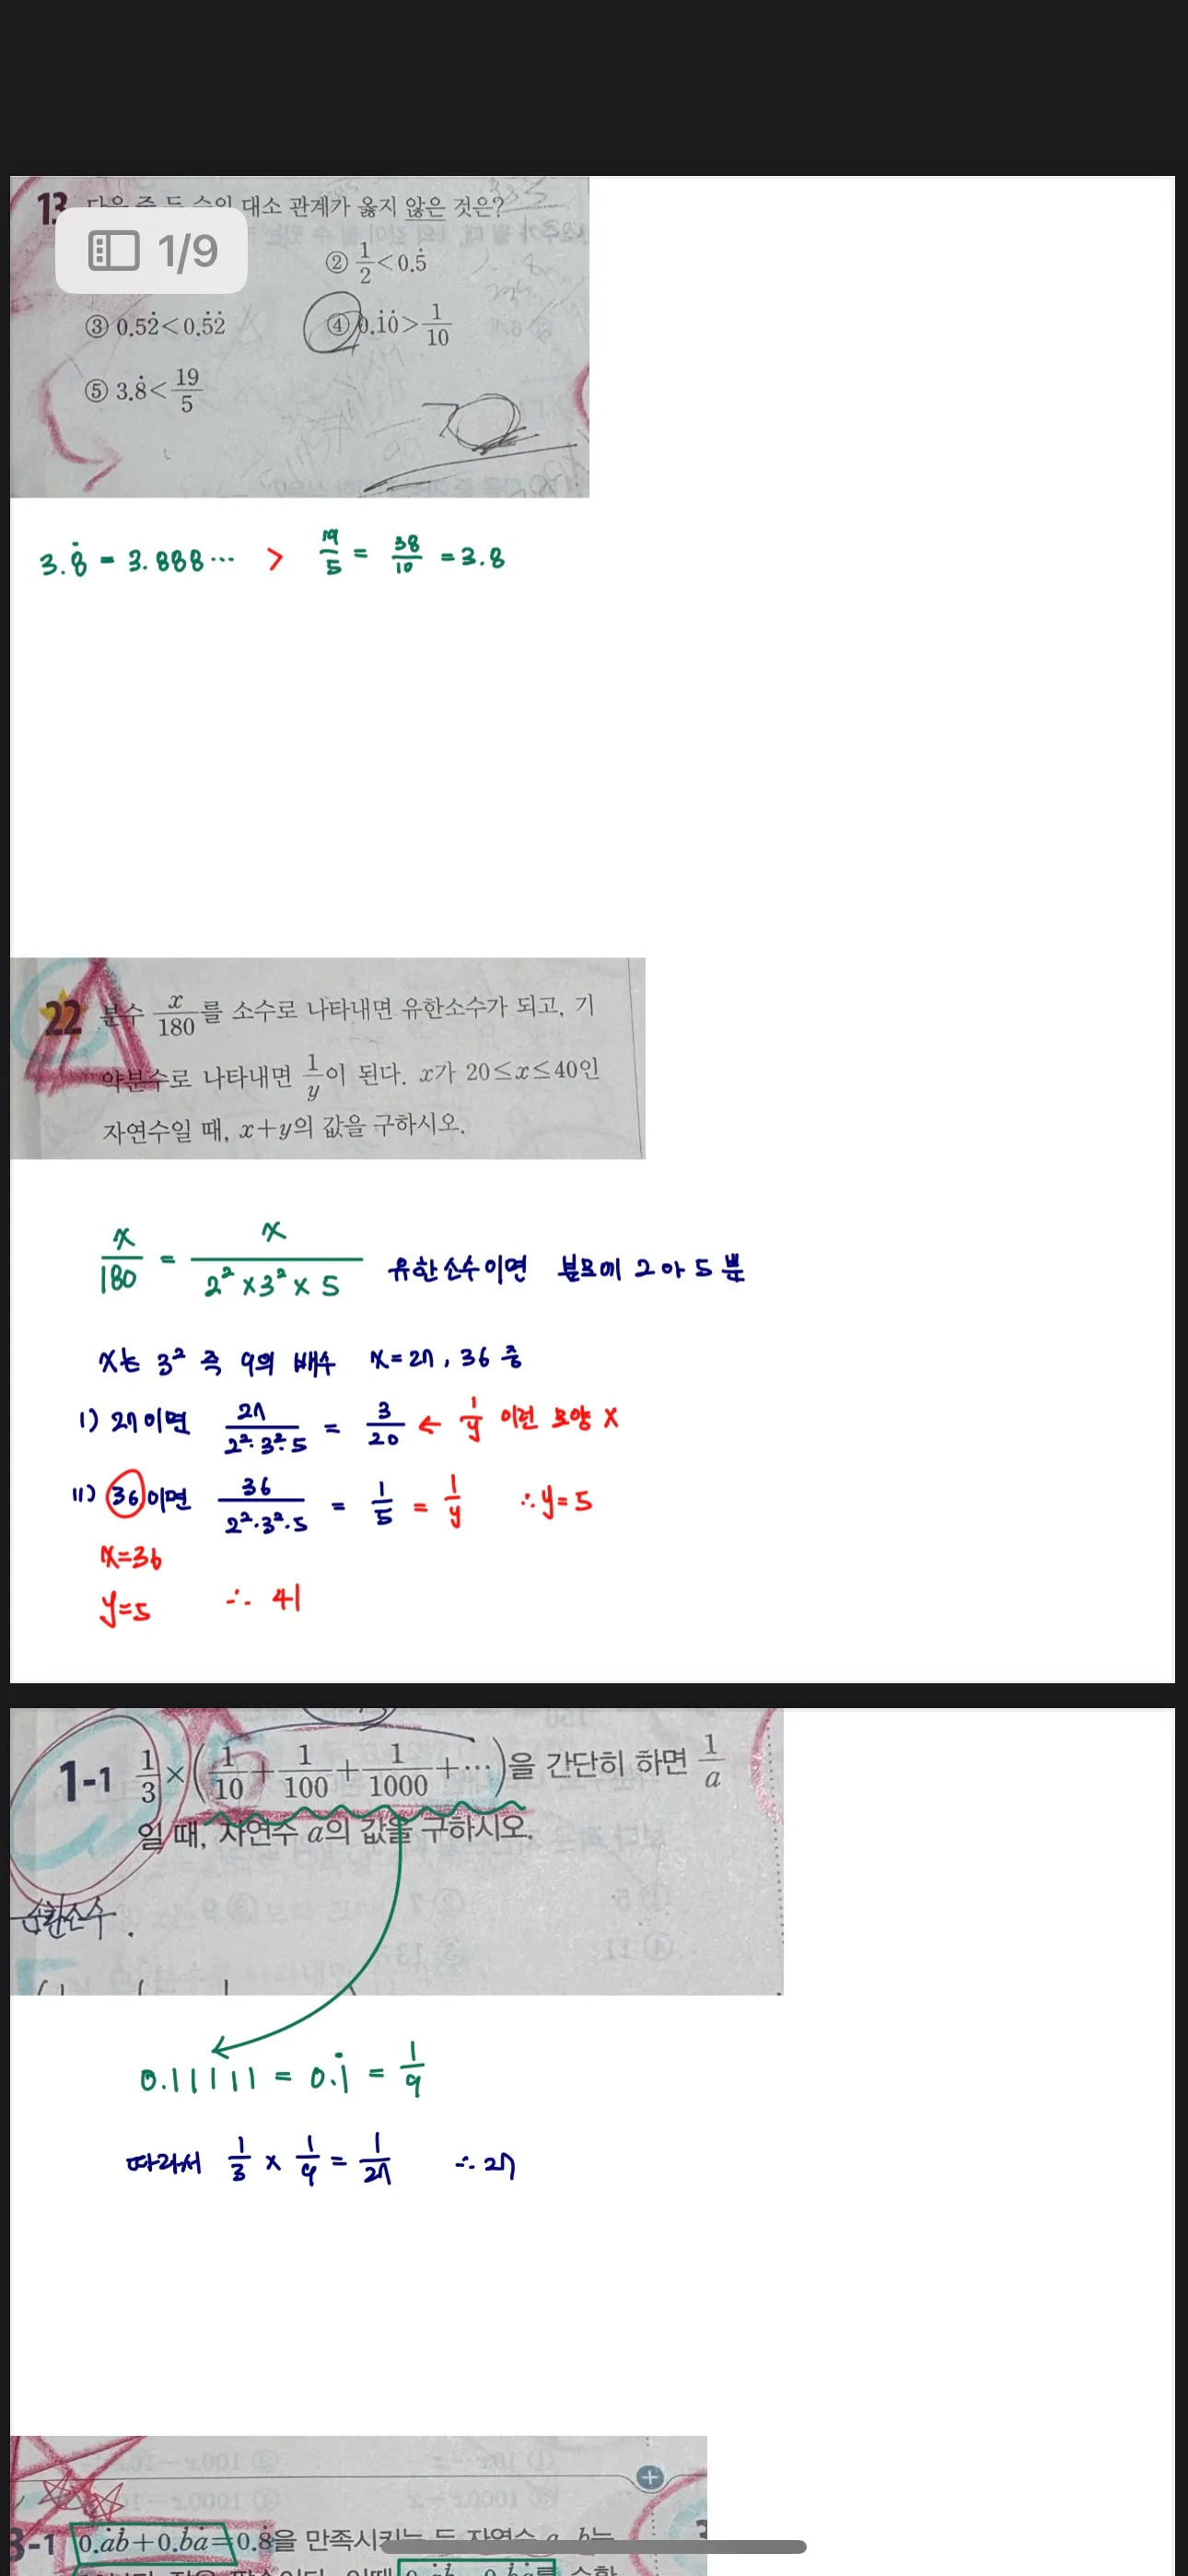 13 다음 중 두 수의 대소 관계가 옳지 않은 것은?
1/9
② 1/2 < 0.5̇
③ 0.52̇ < 0.5̇2̇
④ 0.1̇0̇ > 1/10
⑤ 3.8̇ < 19/5
3.8̇ = 3.888··· > 19/5 = 38/10 = 3.8
22 분수 x/180 를 소수로 나타내면 유한소수가 되고, 기
약분수로 나타내면 1/y이 된다. x가 20≤x≤40인
자연수일 때, x+y의 값을 구하시오.
x/180 = x/(2²×3²×5) 유한소수이면 분모에 2아 5뿐
x는 3² 즉 9의 배수 x=27, 36 중
i) 27이면 27/(2²·3²·5) = 3/20 ← 1/y 이런 모양 X
ii) 36이면 36/(2²·3²·5) = 1/5 = 1/y ∴ y=5
x=36
y=5 ∴ 41
1-1 1/3×(1/10+1/100+1/1000+···)을 간단히 하면 1/a
일 때, 자연수 a의 값을 구하시오.
순환소수.
0.11111 = 0.1̇ = 1/9
따라서 1/3 × 1/9 = 1/27 ∴ 27
3-1 0.ȧḃ+0.ḃȧ=0.8̇을 만족시키는 두 자연수 a, b는